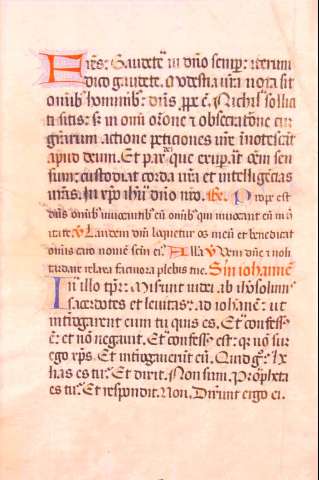 Fres: Gaudete in dno semper: iterum
dico gaudete. Modestia vra nota sit
omib hominib: dns ppe e. Nichil sollici
ti sitis: sz in omi orone & obsecratone cum
grarum actione peticiones vre innotescāt
apud deum. Et pax dei que exup'at oem sen
sum: custodiat corda vra et intelligēcias
vras. In xpo ihu dno nro. Prope est
dns omib inuocantib eu omib qui inuocant eu in
itate. V Laudem dni loquetur os meu et benedicat
omis caro nomē scm ei. Alla V Veni dne z noli
tardare relaxa facinora plebis tue. Sm iohannē
In illo tpr: Miserunt iudei ab iherosolimis
sacerdotes et leuitas: ad iohanē: ut
interrogarent eum tu quis es. Et confess
e: et nō negauit. Et confess est: qr nō sum
ego xps. Et interogauerūt eū. Quid g:
has es tu: Et dixit. Non sum. Propheta
es tu: Et respondit. Non. Dixerunt ergo ei.